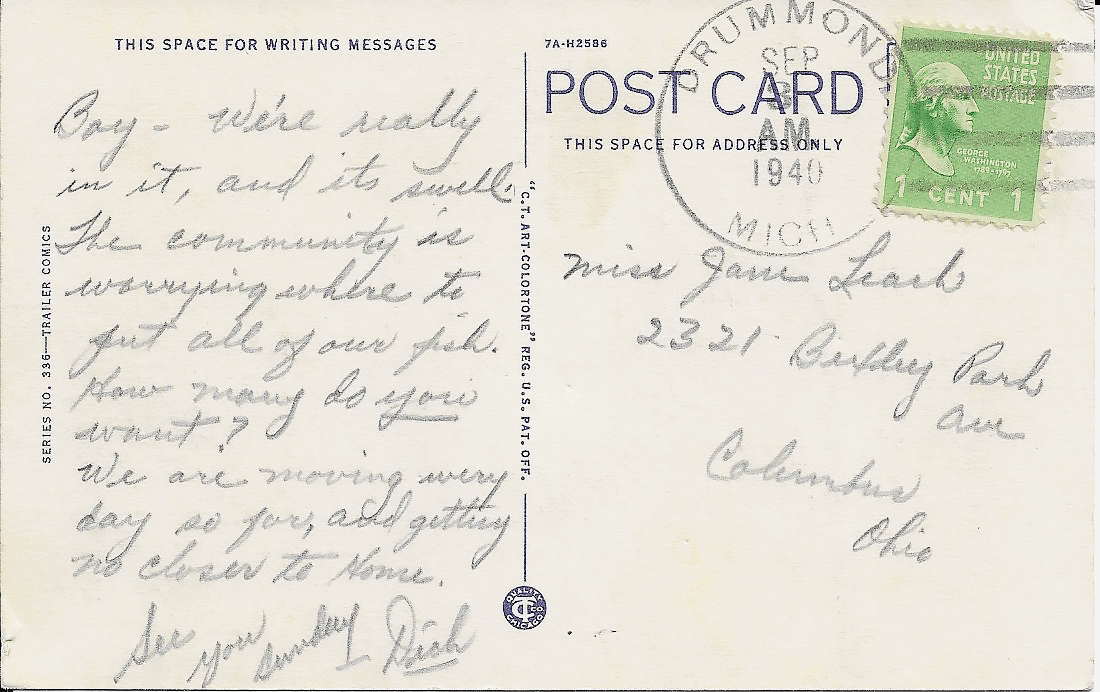 THIS SPACE FOR WRITING MESSAGES
Boy - We're really
in it, and its swell.
The community is
worrying where to
put all of our fish.
How many do you
want?
We are moving every
day so far, and getting
no closer to Home.
See you Sunday Dick
SERIES NO. 336—TRAILER COMICS
"C.T. ART-COLORTONE" REG. U.S. PAT. OFF.
QUALITY
CT CO
CHICAGO
7A-H2586
POST CARD
THIS SPACE FOR ADDRESS ONLY
DRUMMOND
SEP
3
AM
1940
MICH
UNITED
STATES
POSTAGE
GEORGE
WASHINGTON
1789-1797
1 CENT 1
Miss Jane Leach
2321 Bexley Park
Ave
Columbus
Ohio